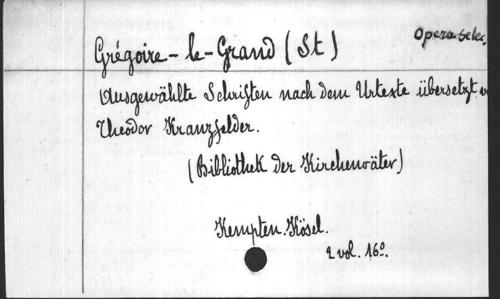 Opera selec
Grégoire-le-Grand (St)
Ausgewählte Schriften nach dem Urtexte übersetzt v
Theodor Kranzfelder.
(Bibliothek der Kirchenväter)
Kempten. Kösel.
2 vol. 16º.